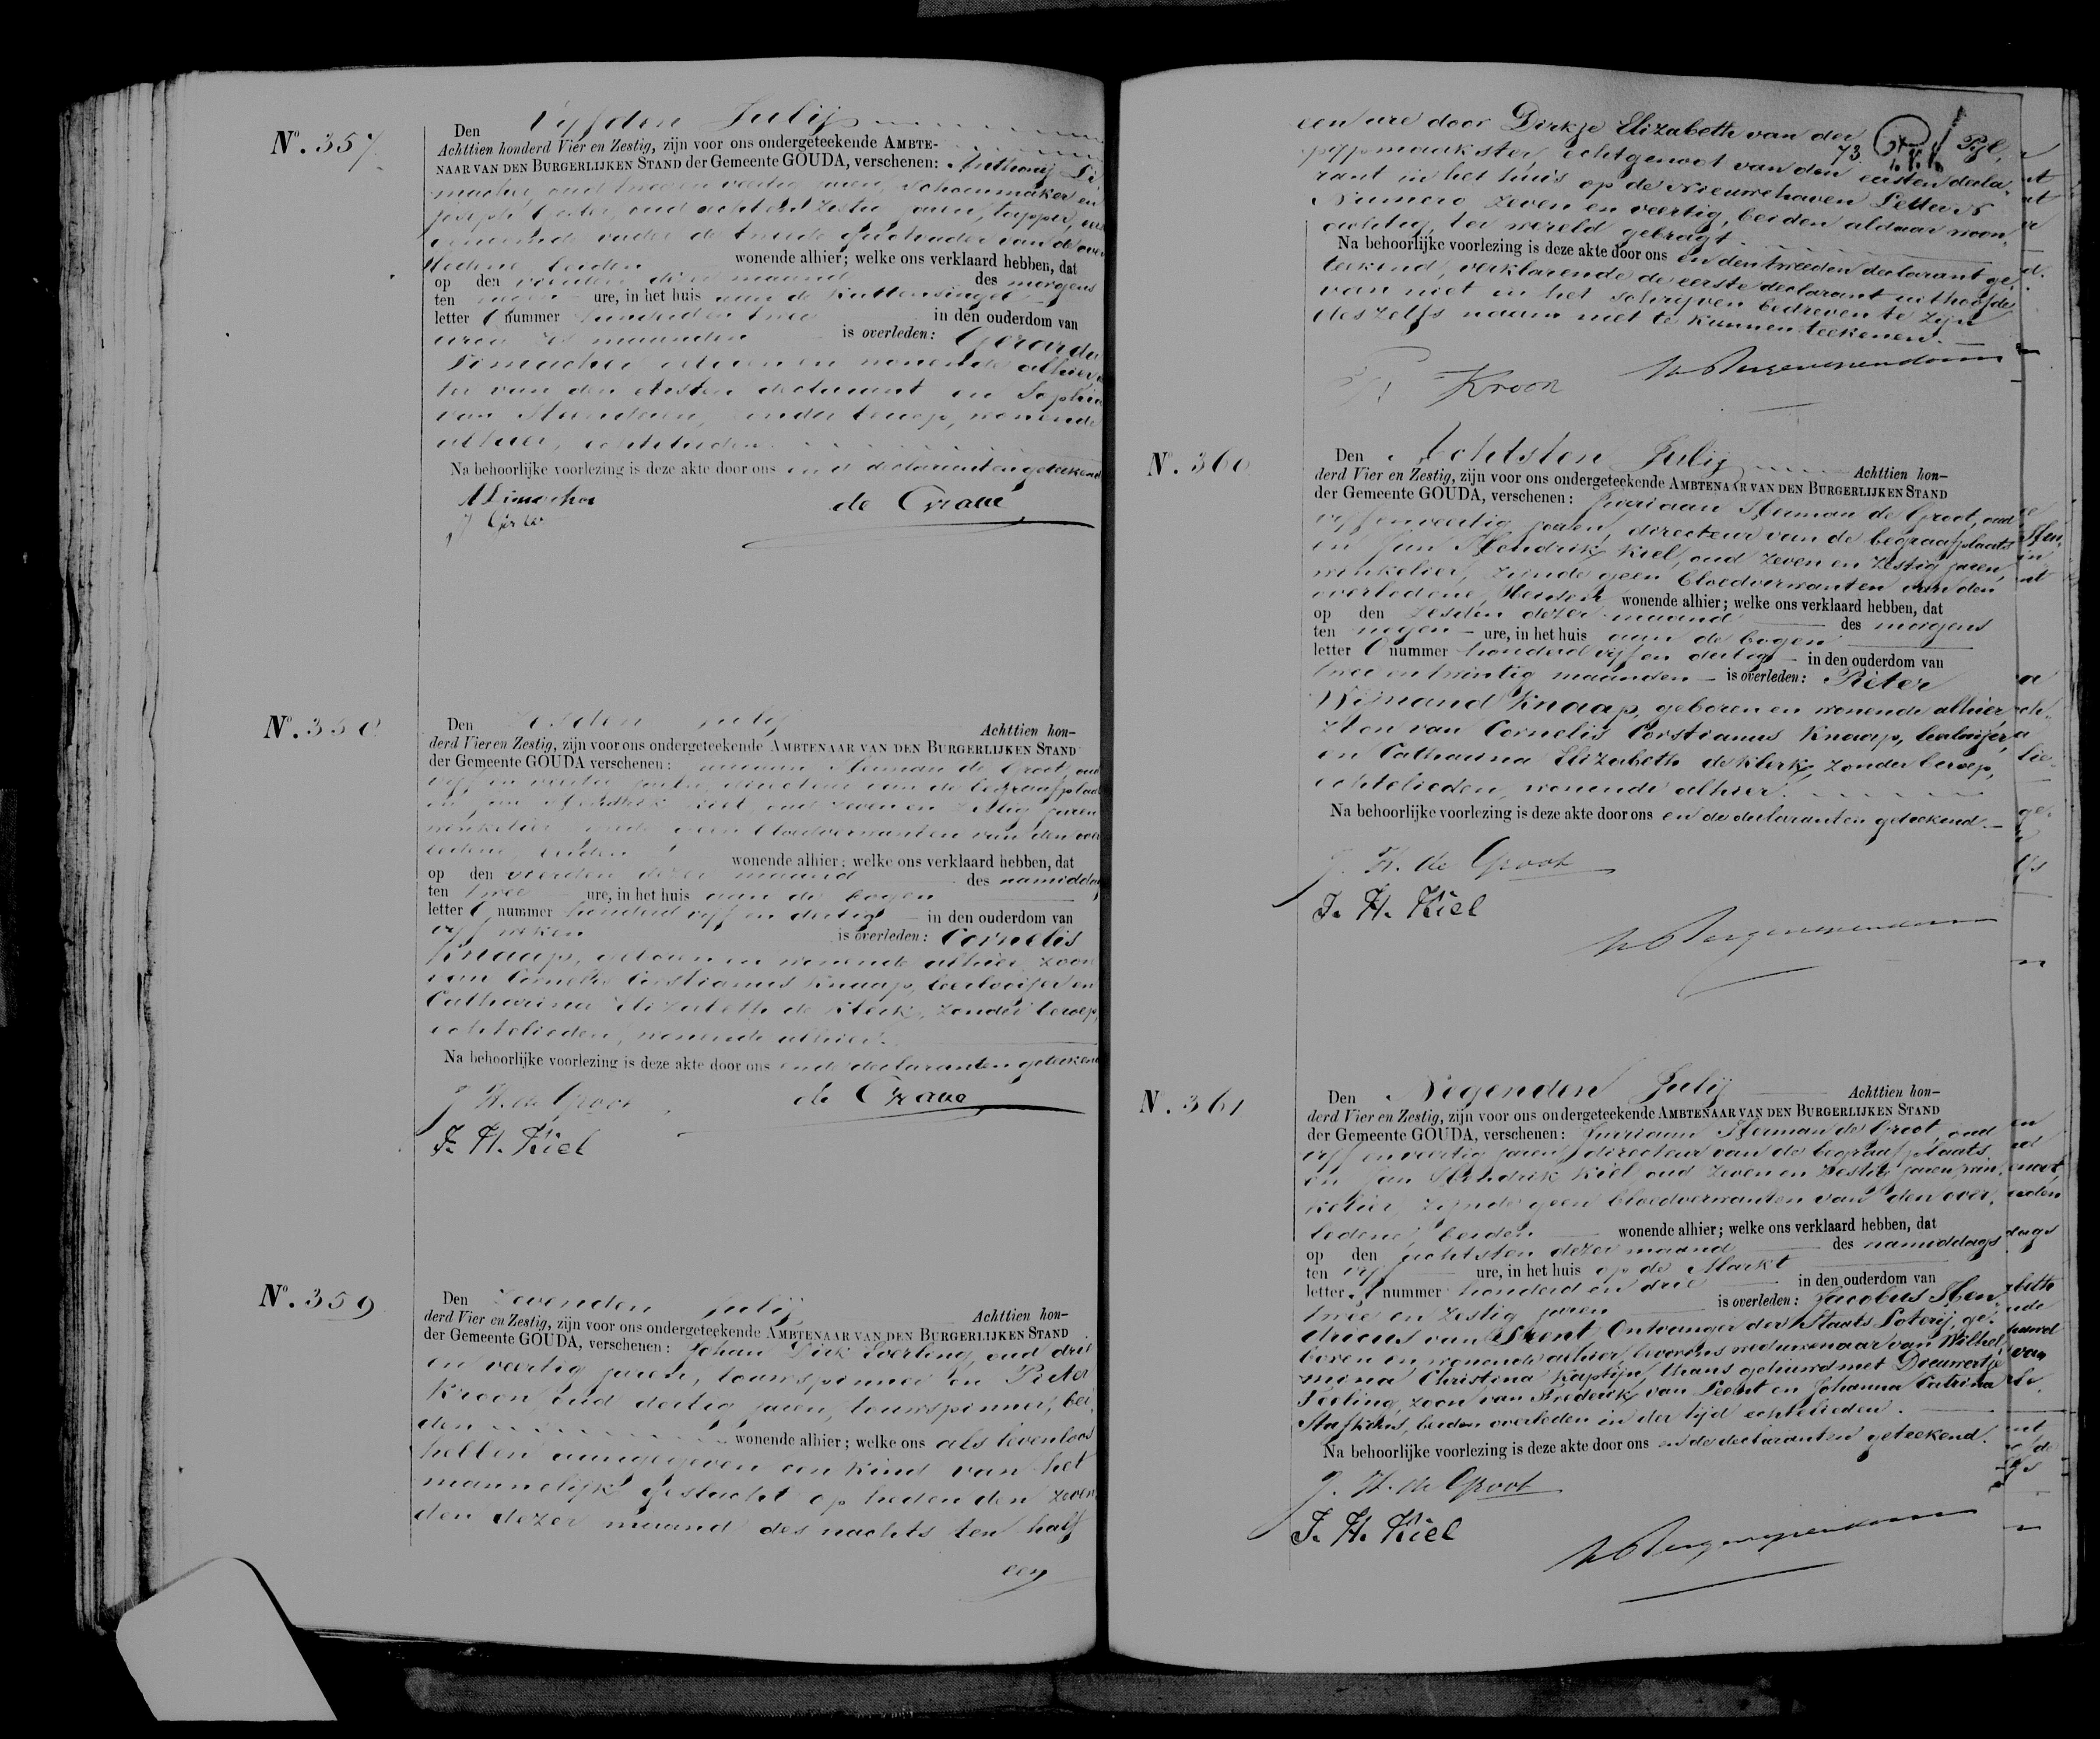 No. 357.
Den Vijfden Julij
Achttien honderd Vier en Zestig, zijn voor ons ondergeteekende AMBTE-
NAAR VAN DEN BURGERLIJKEN STAND der Gemeente GOUDA, verschenen: Anthonij
oud twee en veertig jaren, schoenmaker en
Joseph oud acht en zestig jaren, tapper,
vader de tweede grootvader van de over
ledene beiden wonende alhier; welke ons verklaard hebben, dat
op den vierden dezer maand des morgens
ten negen ure, in het huis aan de Kattensingel
letter nummer honderd en twee in den ouderdom van
maanden is overleden: Gerarda
geboren en wonende alhier,
ter van den eersten declarant en Sophia
van zonder beroep, wonende
alhier, echtelieden.
Na behoorlijke voorlezing is deze akte door ons en de declaranten geteekend
de Graue
No. 358
Den Zesden Julij Achttien hon-
derd Vier en Zestig, zijn voor ons ondergeteekende AMBTENAAR VAN DEN BURGERLIJKEN STAND
der Gemeente GOUDA verschenen: Jurriaan Herman de Groot, oud
vijf en veertig jaren, directeur van de begraafplaats
en Jan Hendrik Kiel, oud zeven en zestig jaren
winkelier, zijnde geen bloedverwanten van den over
ledene, beiden wonende alhier; welke ons verklaard hebben, dat
op den vierden dezer maand des namiddags
ten twee ure, in het huis aan de bogen
letter nummer honderd vijf en dertig in den ouderdom van
vijf weken is overleden: Cornelis
Knaap, geboren en wonende alhier, zoon
van Cornelis Corstianus Knaap, leerlooijer en
Catharina Elizabeth de Klerk, zonder beroep,
echtelieden, wonende alhier.
Na behoorlijke voorlezing is deze akte door ons en de declaranten geteekend
J. H. de Groot
de Graue
J. H. Kiel
No. 359
Den Zevenden Julij Achttien hon-
derd Vier en Zestig, zijn voor ons ondergeteekende AMBTENAAR VAN DEN BURGERLIJKEN STAND
der Gemeente GOUDA, verschenen: Johan Dirk Everling, oud drie
en veertig jaren, touwspinner en Pieter
Kroon, oud dertig jaren, touwspinner, bei
den wonende alhier; welke ons als levenloos
hebben aangegeven een kind van het
mannelijk geslacht op heden den zeven
den dezer maand des nachts ten half
een
een ure door Dirkje Elizabeth van der Pijl,
73
pijpmaakster, echtgenoot van den eersten decla-
rant in het huis op de Nieuwehaven Letter N
Numero zeven en veertig, beiden aldaar woon
achtig, ter wereld gebragt.
Na behoorlijke voorlezing is deze akte door ons en den tweeden declarant ge
teekend, verklarende de eerste declarant uithoofde
van niet in het schrijven bedreven te zijn
deszelfs naam niet te kunnen teekenen.
P. Kroon
No. 360
Den Achtsten Julij Achttien hon-
derd Vier en Zestig, zijn voor ons ondergeteekende AMBTENAAR VAN DEN BURGERLIJKEN STAND
der Gemeente GOUDA, verschenen: Jurriaan Herman de Groot, oud
vijf en veertig jaren, directeur van de begraafplaats
en Jan Hendrik Kiel, oud zeven en zestig jaren,
winkelier, zijnde geen bloedverwanten van den
overledene, beiden wonende alhier; welke ons verklaard hebben, dat
op den zesden dezer maand des morgens
ten negen ure, in het huis aan de bogen
letter nummer honderd vijf en dertig in den ouderdom van
twee en twintig maanden is overleden: Pieter
Wijnand Knaap, geboren en wonende alhier,
zoon van Cornelis Corstianus Knaap, leerlooijer
en Catharina Elizabeth de Klerk, zonder beroep,
echtelieden, wonende alhier.
Na behoorlijke voorlezing is deze akte door ons en de declaranten geteekend.
J. H. de Groot
J. H. Kiel
No. 361
Den Negenden Julij Achttien hon-
derd Vier en Zestig, zijn voor ons ondergeteekende AMBTENAAR VAN DEN BURGERLIJKEN STAND
der Gemeente GOUDA, verschenen: Jurriaan Herman de Groot, oud
vijf en veertig jaren, directeur van de begraafplaats
en Jan Hendrik Kiel, oud zeven en zestig jaren, win-
kelier, zijnde geen bloedverwanten van den over-
ledene, beiden wonende alhier; welke ons verklaard hebben, dat
op den achtsten dezer maand des namiddags
ten vijf ure, in het huis op de Markt
letter nummer honderd en drie in den ouderdom van
twee en zestig jaren is overleden: Jacobus Hen-
dricus van Ontvanger der Staats Loterij, ge-
boren en wonende alhier, bevorens weduwenaar van Wilhel
mina Christina Kaptijn, thans gehuwd met Dieuwertje
zoon van Frederik van en Johanna Catrina
beiden overleden in der tijd echtelieden.
Na behoorlijke voorlezing is deze akte door ons en de declaranten geteekend.
J. H. de Groot
J. H. Kiel